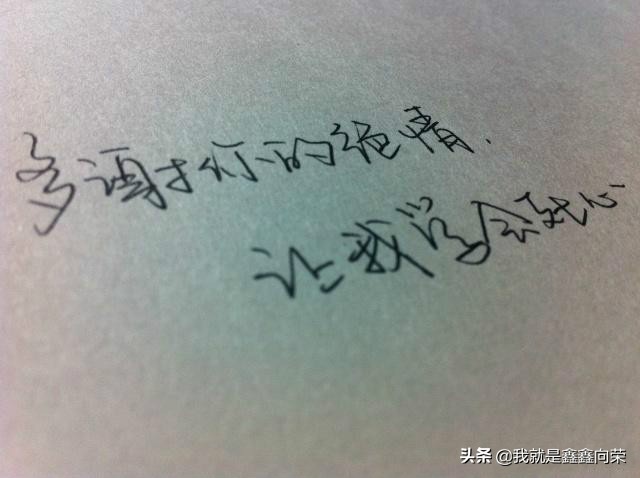 多谓才你的绝情.
让我学会死心
头条 @我就是鑫鑫向荣